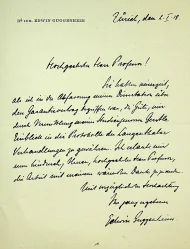 Dr iur. EDWIN GUGGENHEIM
Zürich, den 2. I. 18
Hochgeehrter Herr Professor!
Sie hatten seinerzeit,
als ich in der Abfassung meiner Dissertation über
den Garantievertrag begriffen war, die Güte, mir
durch Vermittlung meines
Einblick in die Protokolle der Langenthaler
Verhandlungen zu gewähren. Sie erlauben
mir hiedurch, Ihnen, hochgeehrter Herr Professor,
die Arbeit mit meinem wärmsten Dank
Mit vorzüglicher Hochachtung
Ihr ganz ergebener
Edwin Guggenheim